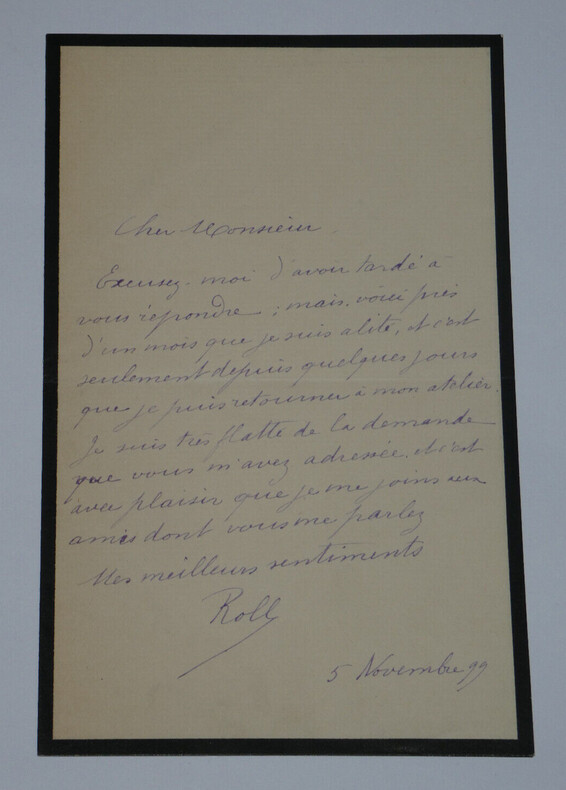 Cher Monsieur,
Excusez-moi d'avoir tardé à
vous répondre ; mais, voici près
d'un mois que je suis alité, et c'est
seulement depuis quelques jours
que je puis retourner à mon atelier.
Je suis très flatté de la demande
que vous m'avez adressée, et c'est
avec plaisir que je me joins aux
amis dont vous me parlez
Mes meilleurs sentiments
Roll
5 Novembre 99